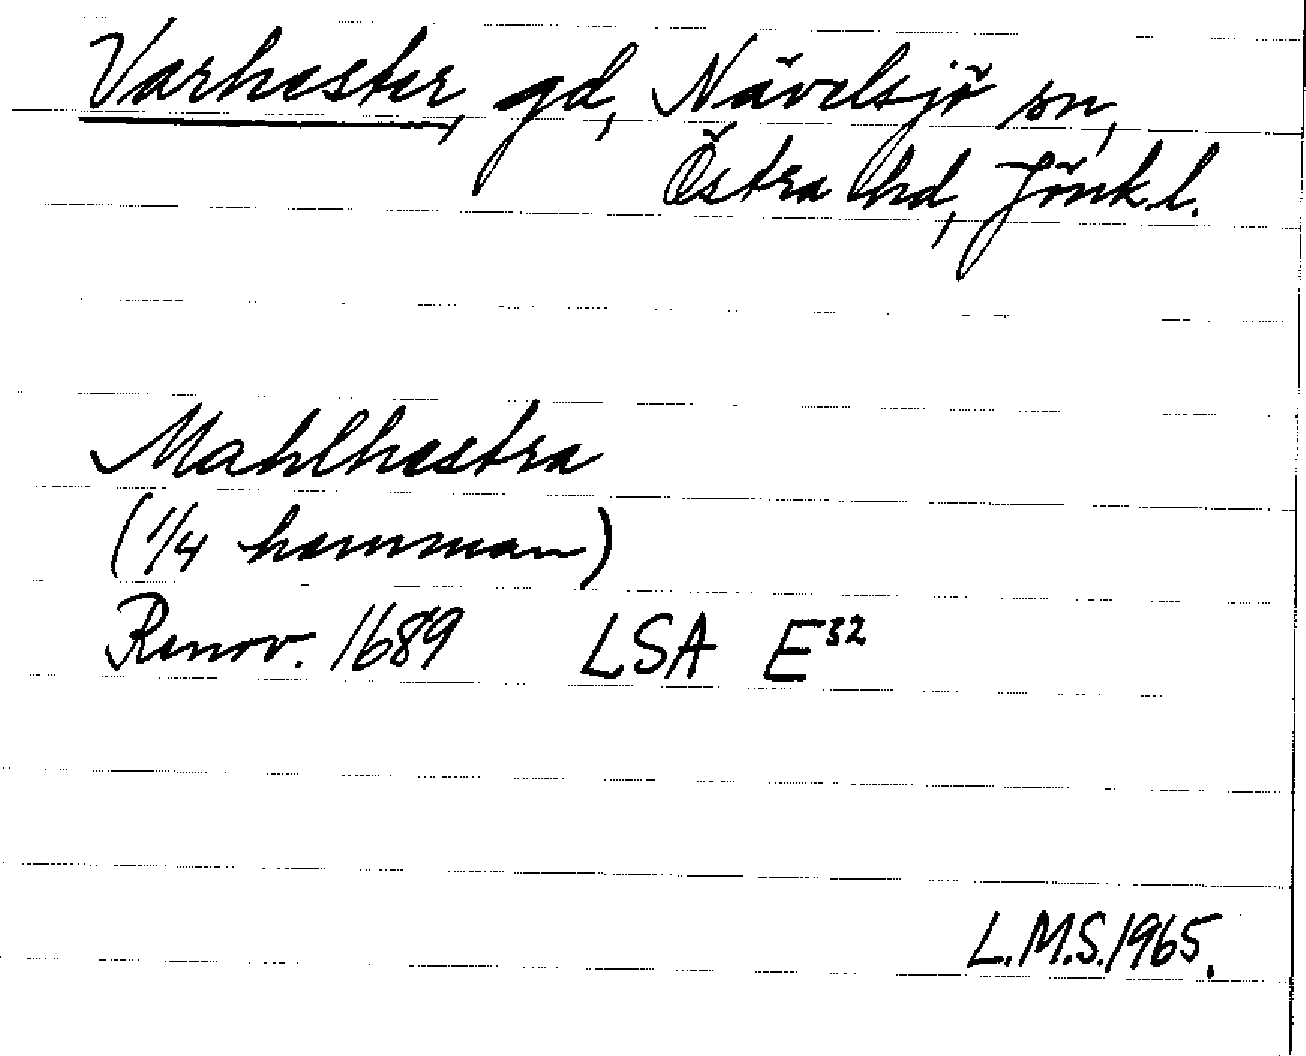 Varhester, gd, Nävelsjö sn,
Östra hd, Jönk.l.
Mahlhestra
(1/4 hemman)
Renov. 1689 LSA E32
L.M.S. 1965.